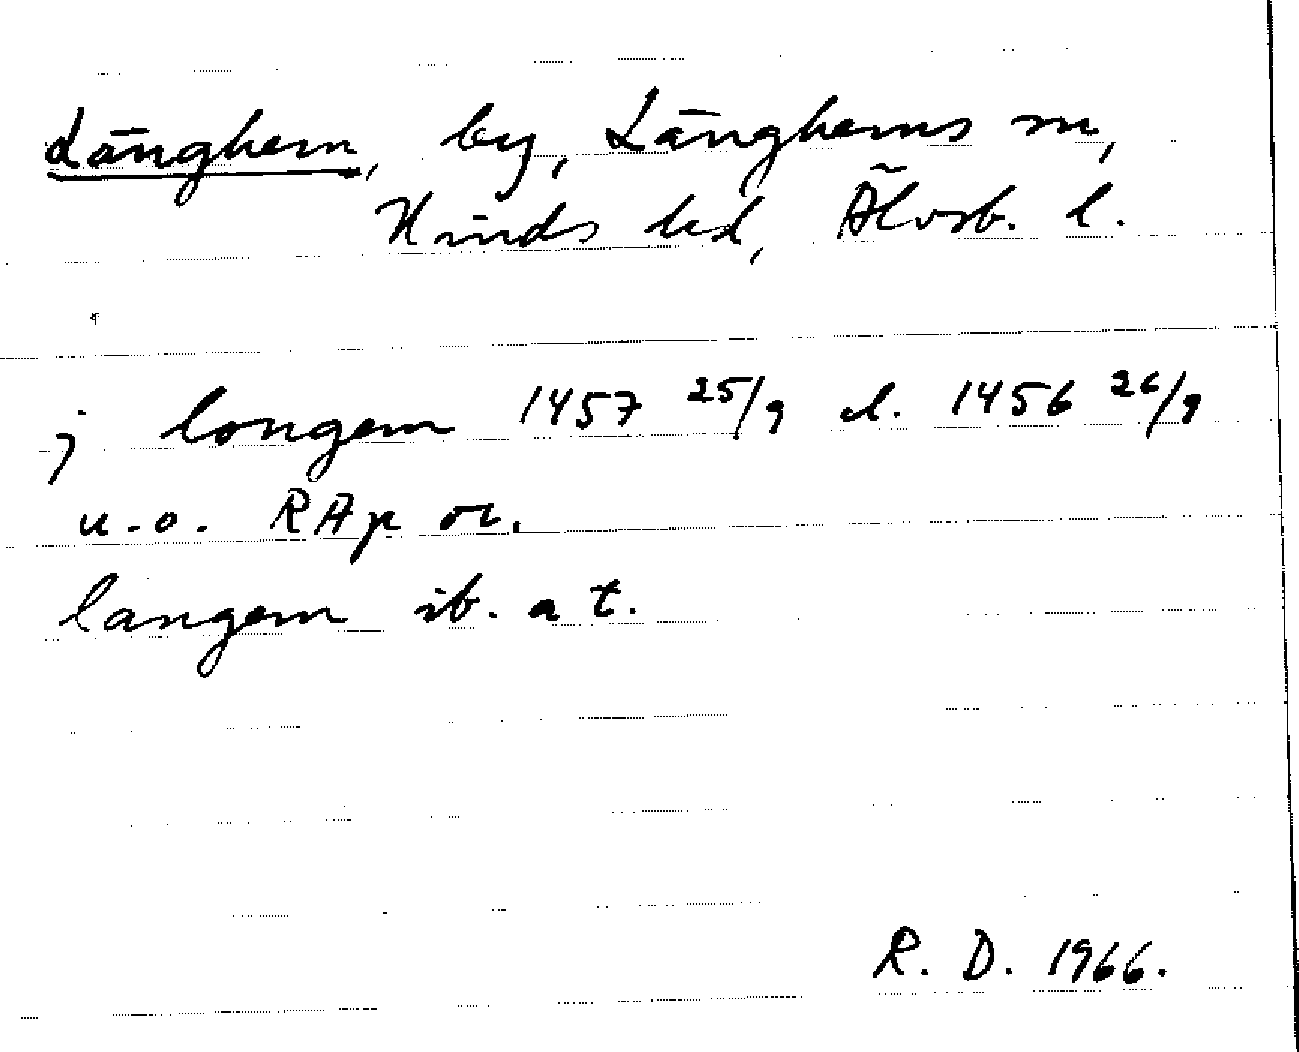 Länghem, by, Länghems sn,
Kinds hd, Älvsb. l.
j longem 1457 25/9 el. 1456 26/9
u.o. RAp or.
langem ib. a t.
R. D. 1966.